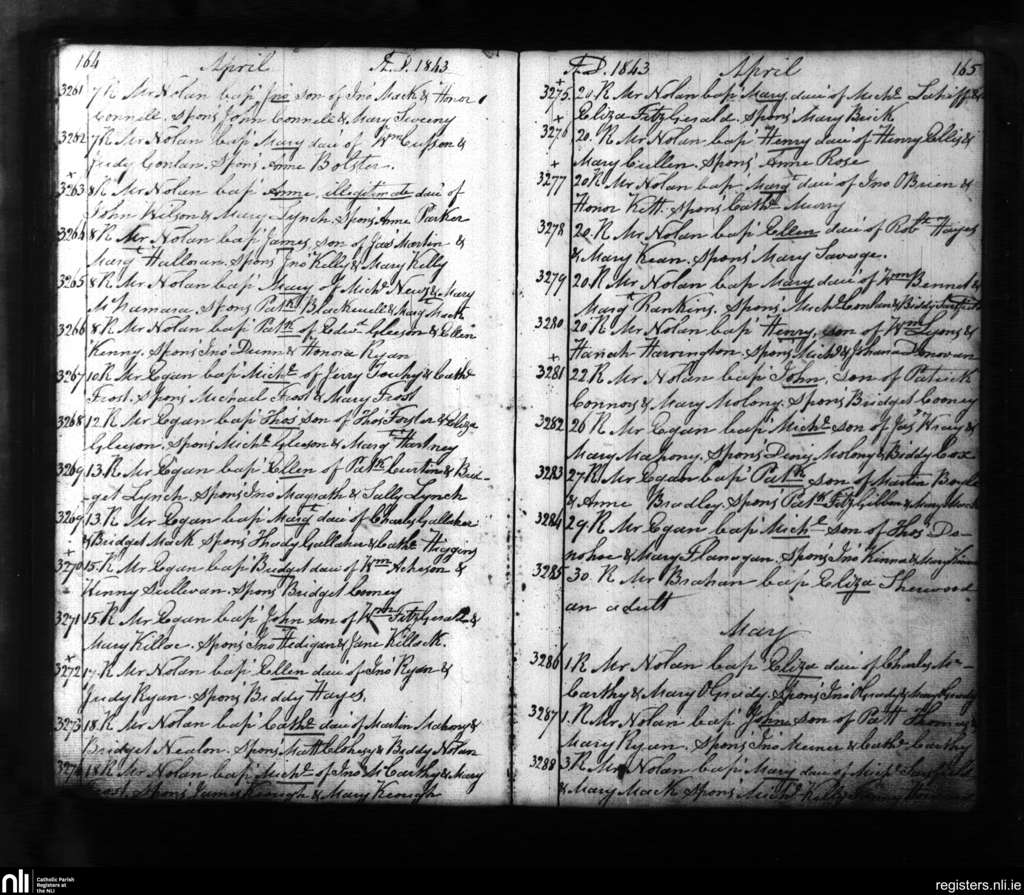 164 April A.D. 1843
3261 7 R Mr Nolan bap' Jno son of Jno Mack & Honor
Connell. Spons John Connell & Mary Sweeny
3262 7 R Mr Nolan bap' Mary daur of Wm Cusson &
Judy Conlan. Spons Anne Bolster
+
3263 8 R Mr Nolan bap' Anne, illegitimate daur of
John Wilson & Mary Lynch. Spons Anne Parker
3264 8 R Mr Nolan bap' James, son of Jas Martin &
Marg Halloran. Spons Jno Kelly & Mary Kelly
3265 8 R Mr Nolan bap' Mary of Michl &  Mary
McNamara. Spons Patk Blackwell & Mary Mack
3266 8 R Mr Nolan bap' Patk of Edwd Gleeson & Ellen
Kenny. Spons Jno Dunn & Honora Ryan
3267 10 R Mr Egan bap' Michl of Jerry & Cathe
Frost. Spons Michael Frost & Mary Frost
3268 12 R Mr Egan bap' Thos son of Thos Forster & Eliza
Gleeson. Spons Michl Gleeson & Margt Hartney
3269 13. R Mr Egan bap' Ellen of Patk Curtin & Brid-
get Lynch. Spons Jno Magrath & Sally Lynch
3269 13. R Mr Egan bap' Margt daur of Charly Gallaher
& Bridget Mack Spons Thady Gallaher & Cathe Higgins
+
3270 15. R Mr Egan bap' Bridget daur of Wm Acheson &
Kenny Sullivan. Spons Bridget Cooney
3271 15. R Mr Egan bap' John son of Wm FitzGerald &
Mary Killoc. Spons Jno Hedigan & Jane Killock.
+
3272 17. R Mr Nolan bap' Ellen daur of Jno Ryan &
Judy Ryan. Spons Biddy Hayes
3273 18. R Mr Nolan bap' Cathe daur of Martin Mahony &
Bridget Nealon. Spons Matt Clohesy & Biddy Nolan
3274 18 R Mr Nolan bap' Michl of Jno McCarthy & Mary
Frost Spons James Keough & Mary Keough
A.D. 1843 April 165
+
3275. 20. R Mr Nolan bap' Mary, daur of Michl &
Eliza FitzGerald. Spons Mary Buck
+
3276 20. R Mr Nolan bap' Henry daur of Henry Ellis &
Mary Cullen. Spons Anne Rose
+
3277 20. R Mr Nolan bap' Margt daur of Jno OBrien &
Honor Kett. Spons Cathe Murry
3278 20. R Mr Nolan bap' Ellen daur of Robt Hayes
& Mary Kean. Spons Mary Savage.
3279 20. R Mr Nolan bap' Mary daur of Wm Bennet &
Margt Rankins. Spons Michl Conlan & Biddy
3280 20. R Mr Nolan bap' Henry, son of Wm Lyons &
Hanah Harrington. Spons Michl & Johana Donovan
+
3281 22. R Mr Nolan bap' John, son of Patrick
Connors & Mary Molony. Spons Bridget Cooney
3282 26. R Mr Egan bap' Michl son of Jas Wray &
Mary Mahony. Spons Deny Molony & Biddy Cox
3283 27. R Mr Egan bap' Patk son of Martin
& Anne Bradley. Spons Patk FitzGibbon & Mary
3284 29. R Mr Egan bap' Michl son of Thos Do-
nohoe & Mary Flanagan. Spons Jno Kenna & Mary
3285 30. R Mr Brahan bap' Eliza Sherwood
an adult
May
3286 1. R Mr Nolan bap' Eliza daur of Charly Mc-
Carthy & Mary OGrady. Spons Jno OGrady & Mary OGrady
3287 1. R Mr Nolan bap' John son of Patt &
Mary Ryan. Spons Jno & Cathe Carthy
3288 3 R Mr Nolan bap' Mary daur of Michl Sarsfield
& Mary Mack Spons Michl Kelly
nli Catholic Parish
Registers at
the NLI
registers.nli.ie